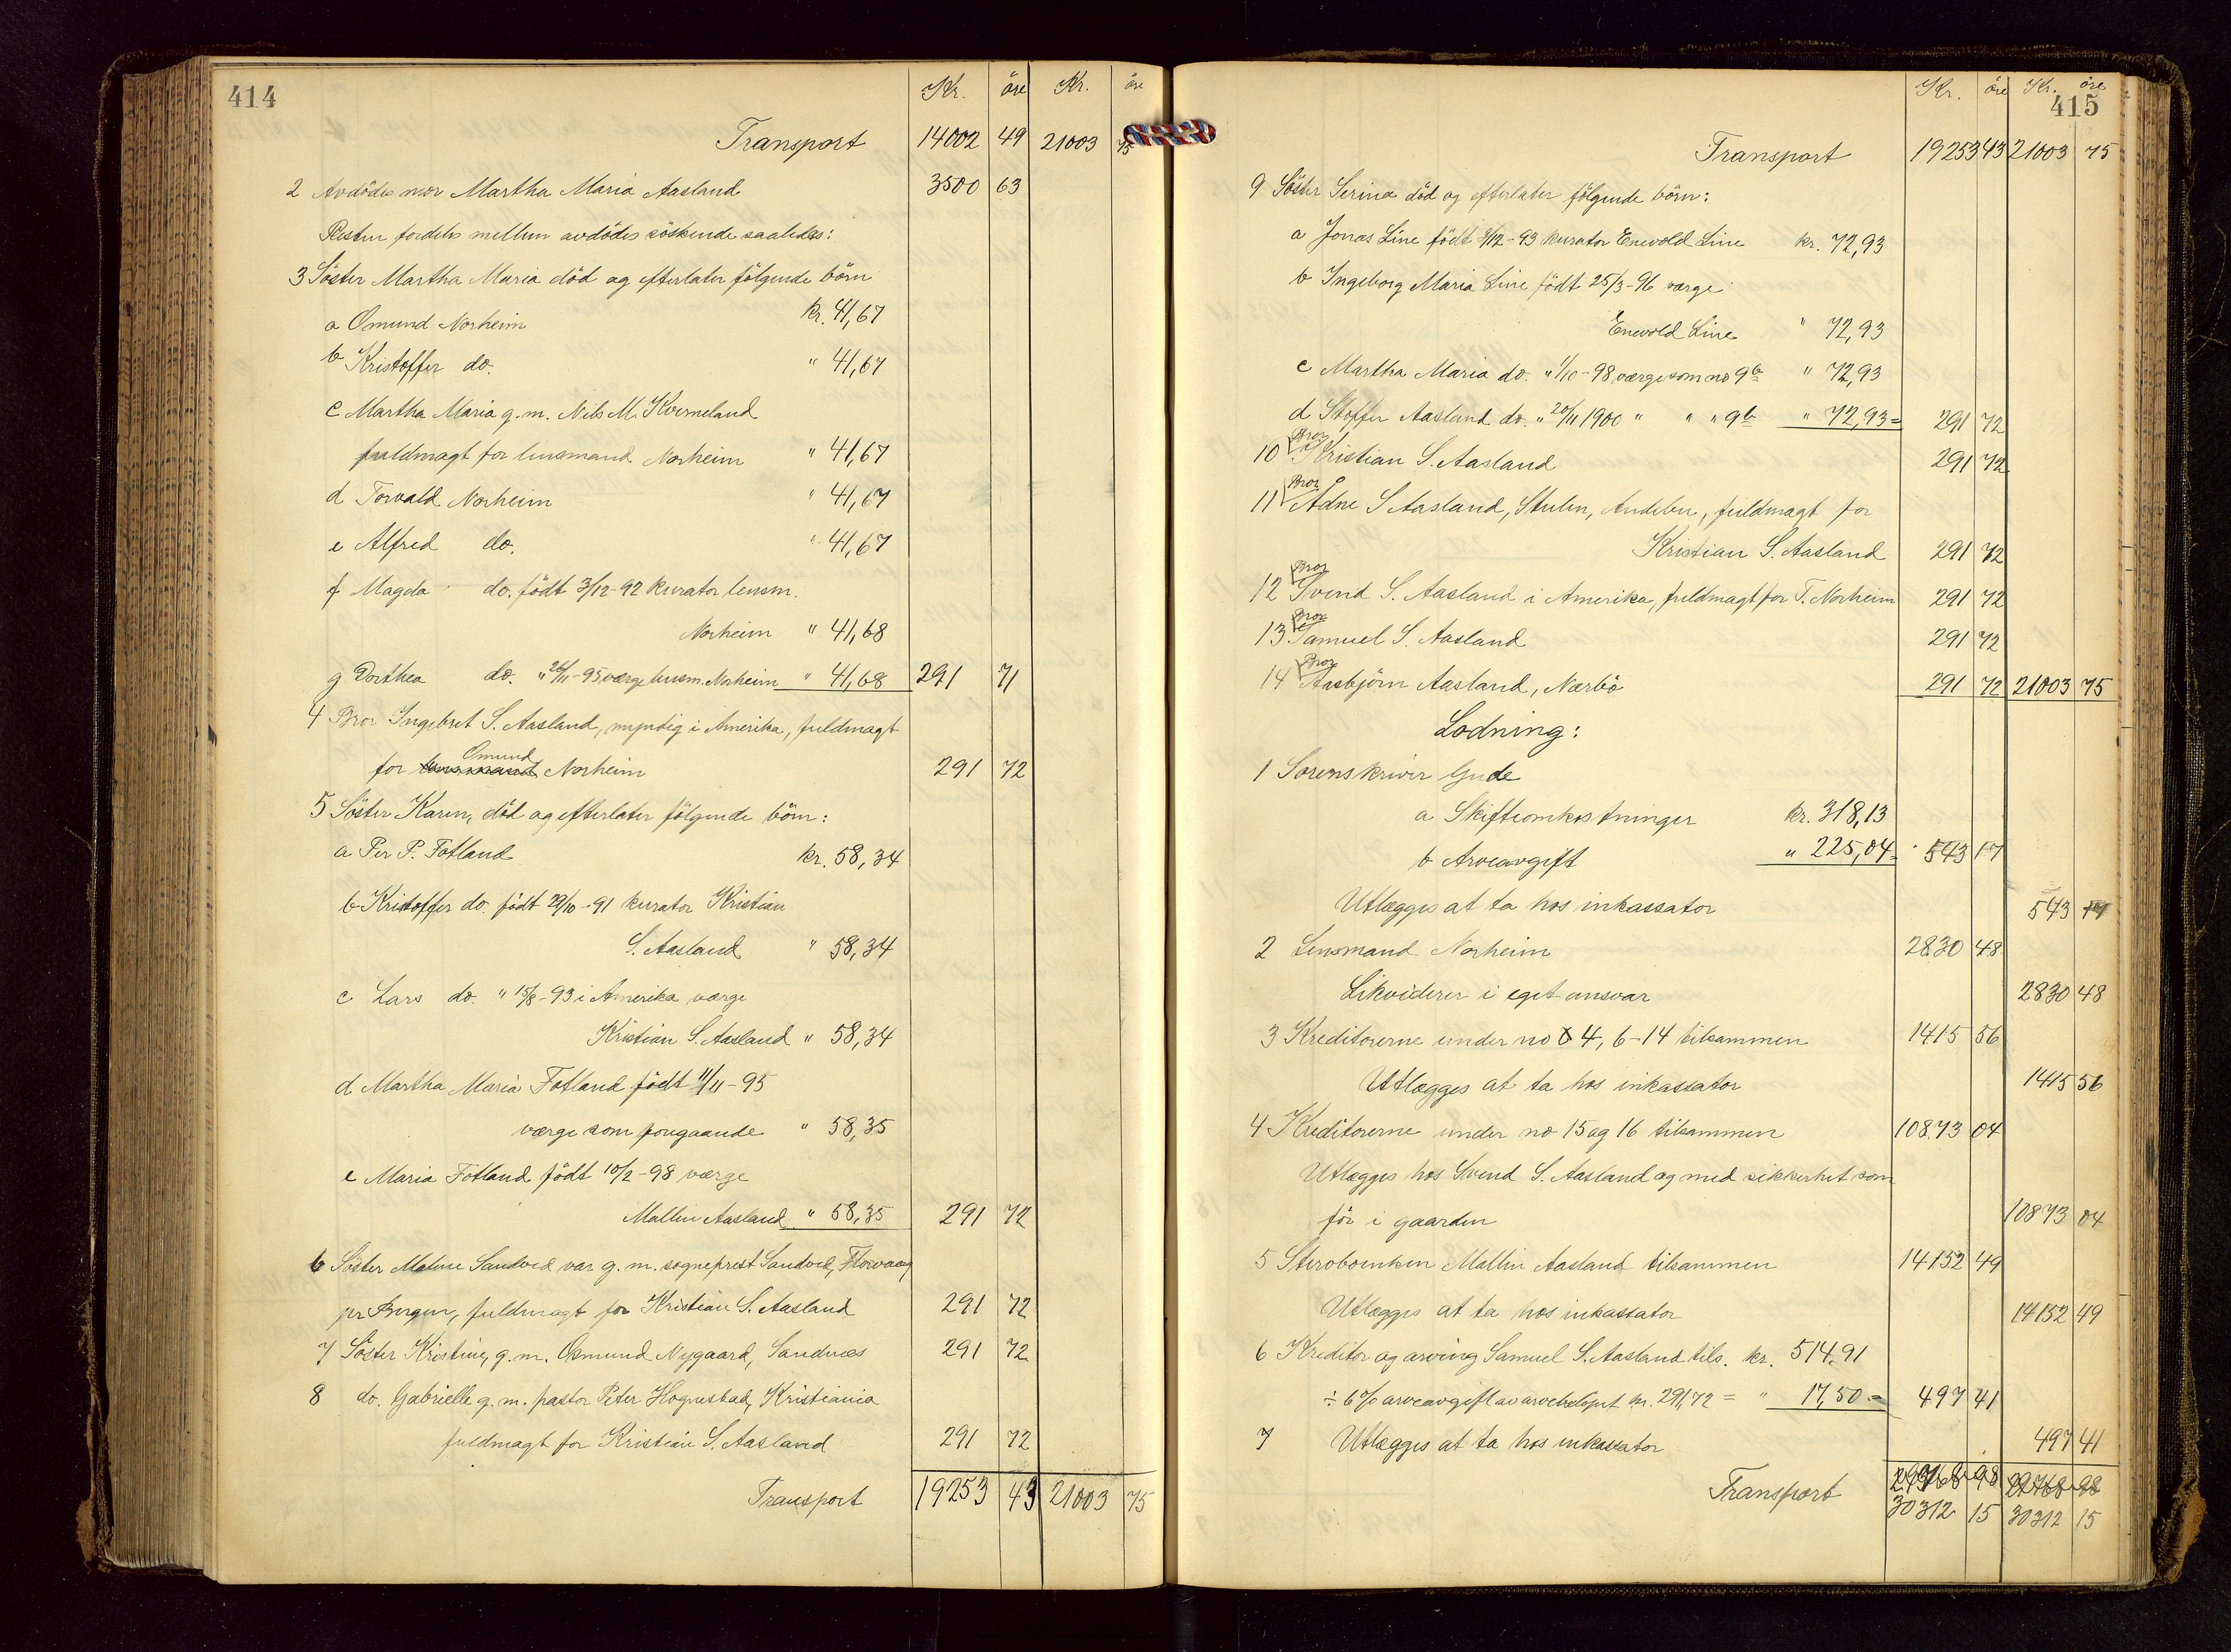 414
Kr. öre Kr. öre
Transport 14002 49 21003 75
2 Avdödes mor Martha Maria Aasland 3500 63
Resten fordeles mellem avdödes söskende saaledes:
3 Söster Martha Maria död og efterlater fölgende börn
a Omund Norheim kr. 41,67
b Kristoffer do. " 41,67
c Martha Maria g.m. Nils M. Kverneland
fuldmagt for lensmand Norheim " 41,67
d Torvald Norheim " 41,67
e Alfred do. " 41,67
f Magda do. födt 3/12-92 kurator lensm.
Norheim " 41,68
g Dorthea do. " 26/11-95 værge lensm. Norheim " 41,68 291 71
4 Bror Ingebret S. Aasland, myndig i Amerika, fuldmagt
for lensmand Omund Norheim 291 72
5 Söster Karen, död og efterlater fölgende börn:
a Per P. Fotland kr. 58,34
b Kristoffer do. födt 29/10-91 kurator Kristian
S. Aasland " 58,34
c Lars do. " 15/8-93 i Amerika værge
Kristian S. Aasland " 58,34
d Martha Maria Fotland födt 11/11-95
værge som forrgaaende " 58,35
e Maria Fotland födt 10/2-98 værge
Mallin Aasland " 58,35 291 72
6 Söster Malene Sandved var g.m. sogneprest Sandved,
pr Bergen, fuldmagt for Kristian S. Aasland 291 72
7 Söster Kristine, g.m. Osmund Nygaard, Sandnes 291 72
8 do. Gabrielle g.m. pastor Peter Hognestad, Kristiania
fuldmagt for Kristian S. Aasland 291 72
Transport 19253 43 21003 75
415
Kr. öre Kr. öre
Transport 19253 43 21003 75
9 Söster Serina död og efterlater fölgende börn:
a Jonas Line födt 3/12-93 kurator Enevold Line kr. 72,93
b Ingeborg Maria Line födt 25/3-96 værge
Enevold Line " 72,93
c Martha Maria do. " 1/10-98 værge som no 9b " 72,93
d Stoffer Aasland do. " 20/11 1900 " " " 9b " 72,93 = 291 72
10 Bror Kristian S. Aasland 291 72
11 Bror Ådne S Aasland, Stulen, Andebu, fuldmagt for
Kristian S. Aasland 291 72
12 Bror Svend S. Aasland i Amerika, fuldmagt for T. Norheim 291 72
13 Bror Samuel S. Aasland 291 72
14 Bror Aasbjörn Aasland, Nærbö 291 72 21003 75
Lodning:
1 Sorenskriver Gude
a Skifteomkostninger kr. 318,13
b Arveavgift " 225,04 = 543 17
Utlægges at ta hos inkassator 543 17
2 Lensmand Norheim 2830 48
Likviderer i eget ansvar 2830 48
3 Kreditorerne under no 4, 6-14 tilsammen 1415 56
Utlægges at ta hos inkassator 1415 56
4 Kreditorerne under no 15 og 16 tilsammen 10873 04
Utlægges hos Svend S. Aasland og med sikkerhet som
för i gaarden 10873 04
5 Sterboenken Mallin Aasland tilsammen 14152 49
Utlægges at ta hos inkassator 14152 49
6 Kreditor og arving Samuel S. Aasland tils. kr. 514,91
÷ 6% arveavgift av arvebelöpet kr. 291,72 = " 17,50 = 497 41
7 Utlægges at ta hos inkassator 497 41
Transport 29768 98 29768 98
30312 15 30312 15